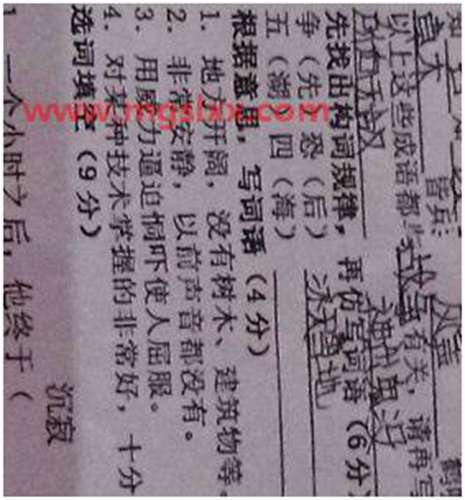 皆兵;
以上这些成语都与战争有关，请再写
神出鬼没
先找出构词规律，再仿写词语（6分
争（先）恐（后）
冰天雪地
五（湖）四（海）
根据意思，写词语（4分）
1. 地方开阔，没有树木、建筑物等。
2. 非常安静，以前声音都没有。
3. 用力逼迫恫吓使人屈服。
4. 对某种技术掌握的非常好，十分
选词填空（9分）
沉寂
1 一个小时之后，他终于（
www.mgslxx.com